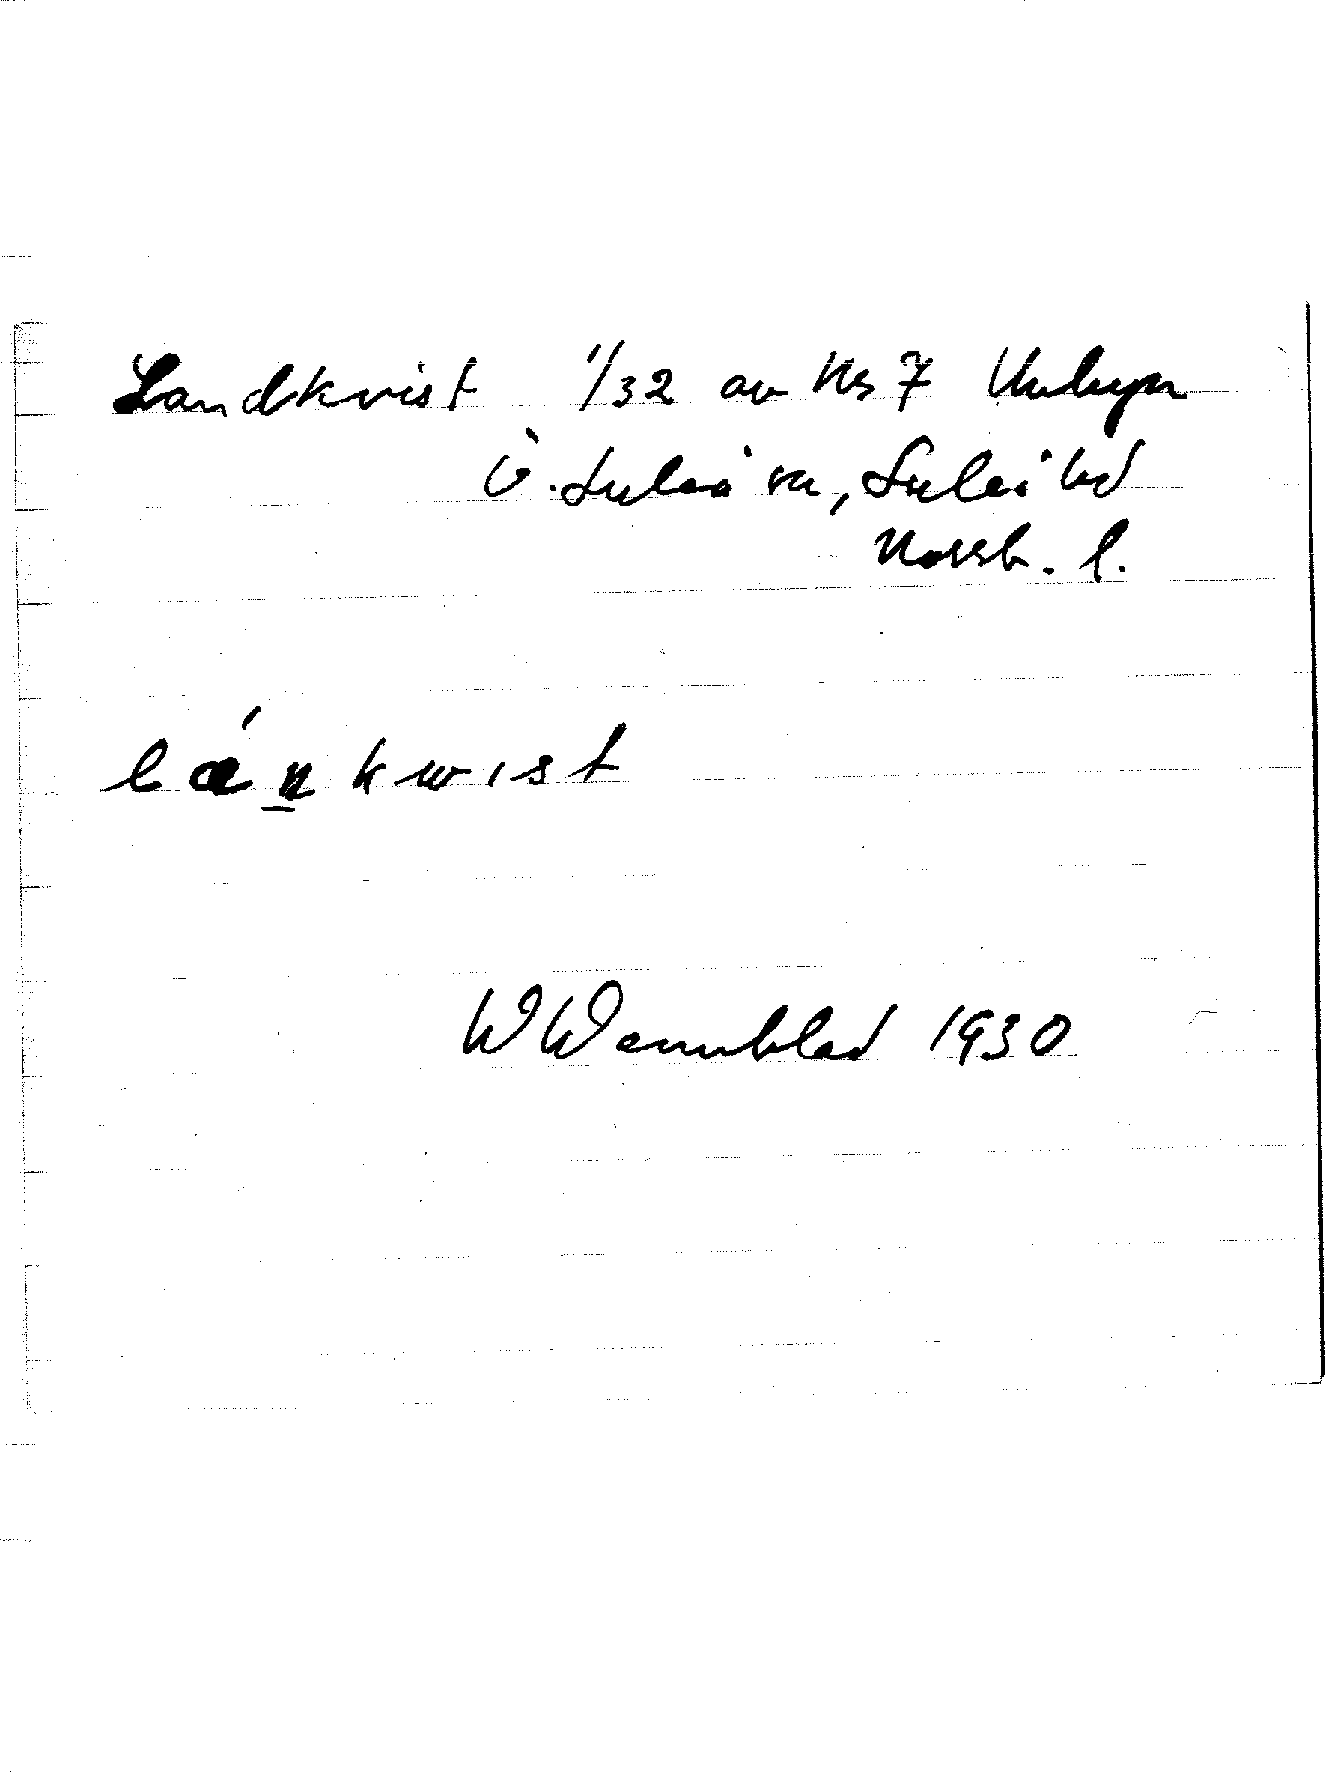 Landkvist 1/32 av No 7 Unbyn
Ö. Luleå sn, Luleå hd
Norrb. l.
lánkwist
W Wennblad 1930